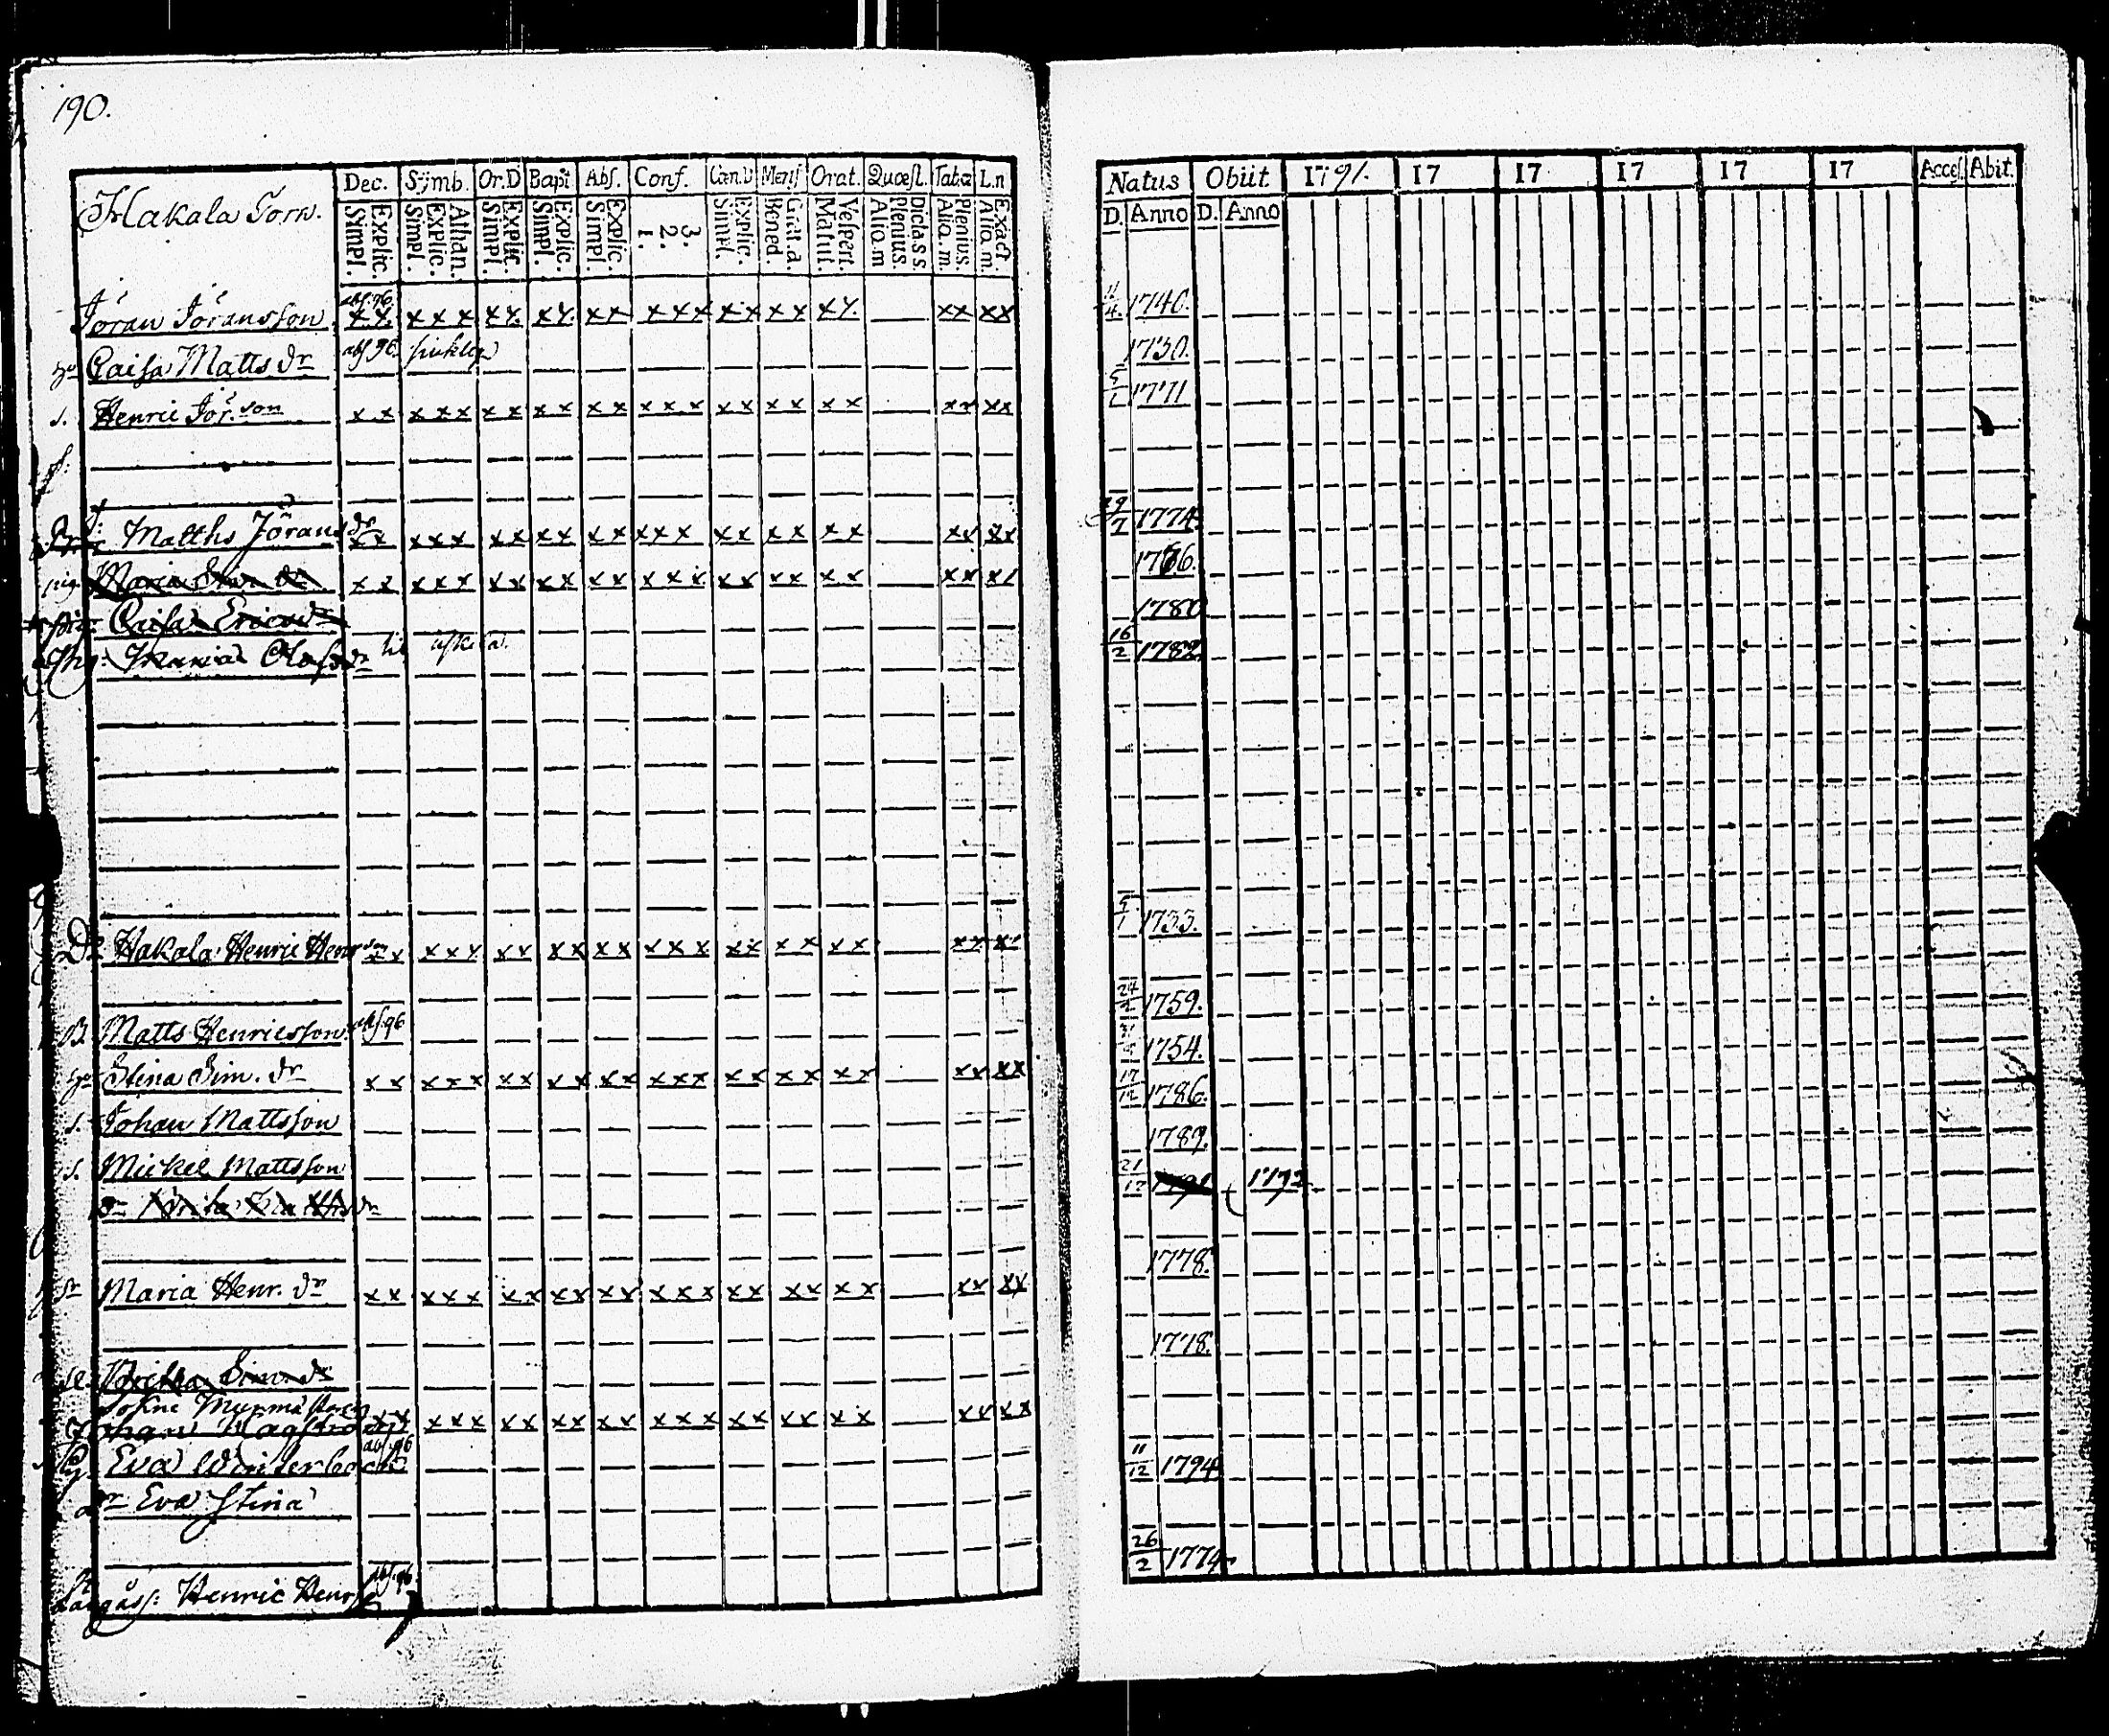 190.
Hakala Torn.
Dec. Symb. Or.D Bapt. Abs. Conf. Cœn.D Mens Orat. Quæst. Tabœ L.n
Simpl. Explic. Simpl. Explic. Athan. Simpl. Explic. Simpl. Explic. Simpl. Explic. 1. 2. 3. Simpl. Explic. Bened. Grat.a. Matut. Vespert. Alio.m Plenius. Dicta s s. Alio.m. Plenius. Alio m. Exact
abs. 96.
Jöran Jöransson x x x x x x x x x x x x x x x x x x x x x x x
hu Caisa Matts dr abs 96. siuklig
s. Henric Jör.son x x x x x x x x x x x x x x x x x x x x x x
Matths Jörans dr x x x x x x x x x x x x x x x x x x x x x x
pig. Maria dr x x x x x x x x x x x x x x x x x x x x x x
pig. Caisa Erics dr
Pig: Maria Olofs dr
Do Hakala Henric Henr son x x x x x x x x x x x x x x x x x x x x x x
B. Matts Henricsson abs. 96
hu Stina Sim. dr x x x x x x x x x x x x x x x x x x x x x x
s. Johan Mattsson
s. Mickel Mattsson
dr dr
sr Maria Henr. dr x x x x x x x x x x x x x x x x x x x x x x
Sim dr
Johan x x x x x x x x x x x x x x x x x x x x
abs. 96
Hu Eva
dr Eva Stina
abs. 96
Henric Henrs
Natus Obiit 1791. 17 17 17 17 17 Acces. Abit.
D. Anno D. Anno
11/4 1740.
1730.
5/1 1771
29/7 1774.
1766.
1780
16/2 1782
5/1 1733.
24/2 1759.
1754.
17/12 1786.
1789.
21/12 1791 1792
1778.
1778.
11/12 1794
26/2 1774